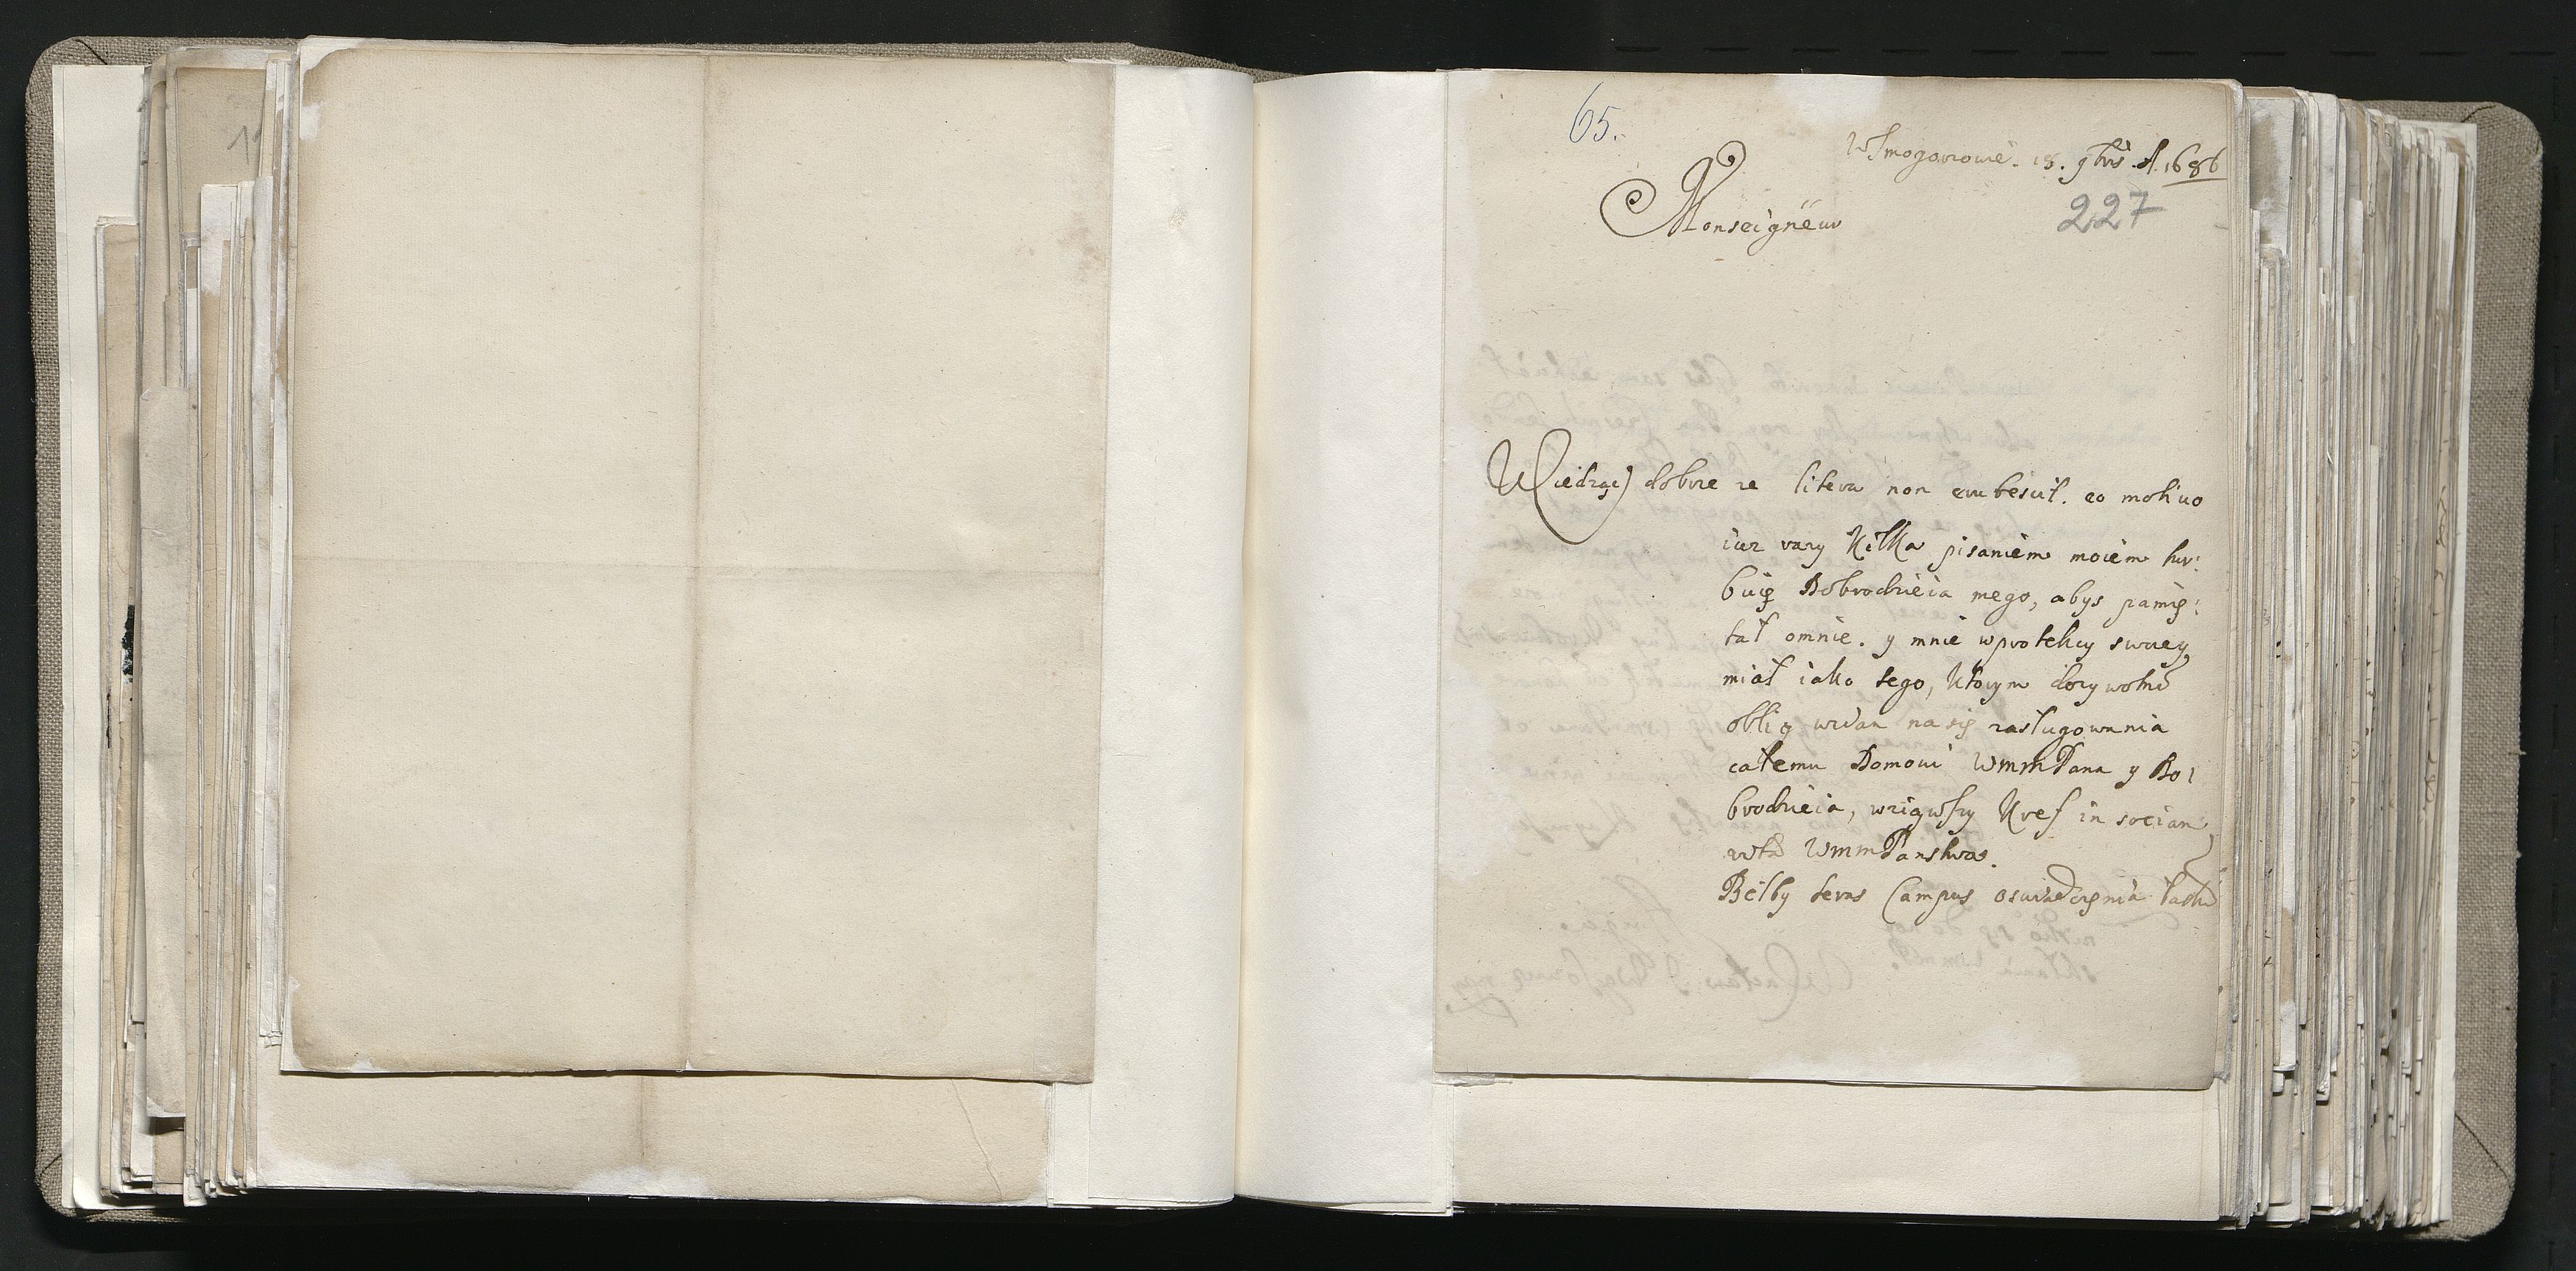 65.
W Smogorowie. 18. 9bris A. 1686
227
Monseigneur
Wiedząc dobrze ze litera non erubescit. eo motiuo
iuz razy kilka pisaniem moiem tur:
buię Dobrodzieia mego, abys pamię:
tał omnie. y mnie wprotekcy swoiey
miał iako tego, ktorym dozywotni
oblig wziąn na się zasługowania
całemu Domowi WmmPana y Do:
brodzieia, wziąwszy Kref in sociam
WmmPanstwa.
Bełby teras Campus oswiadczenia łaski